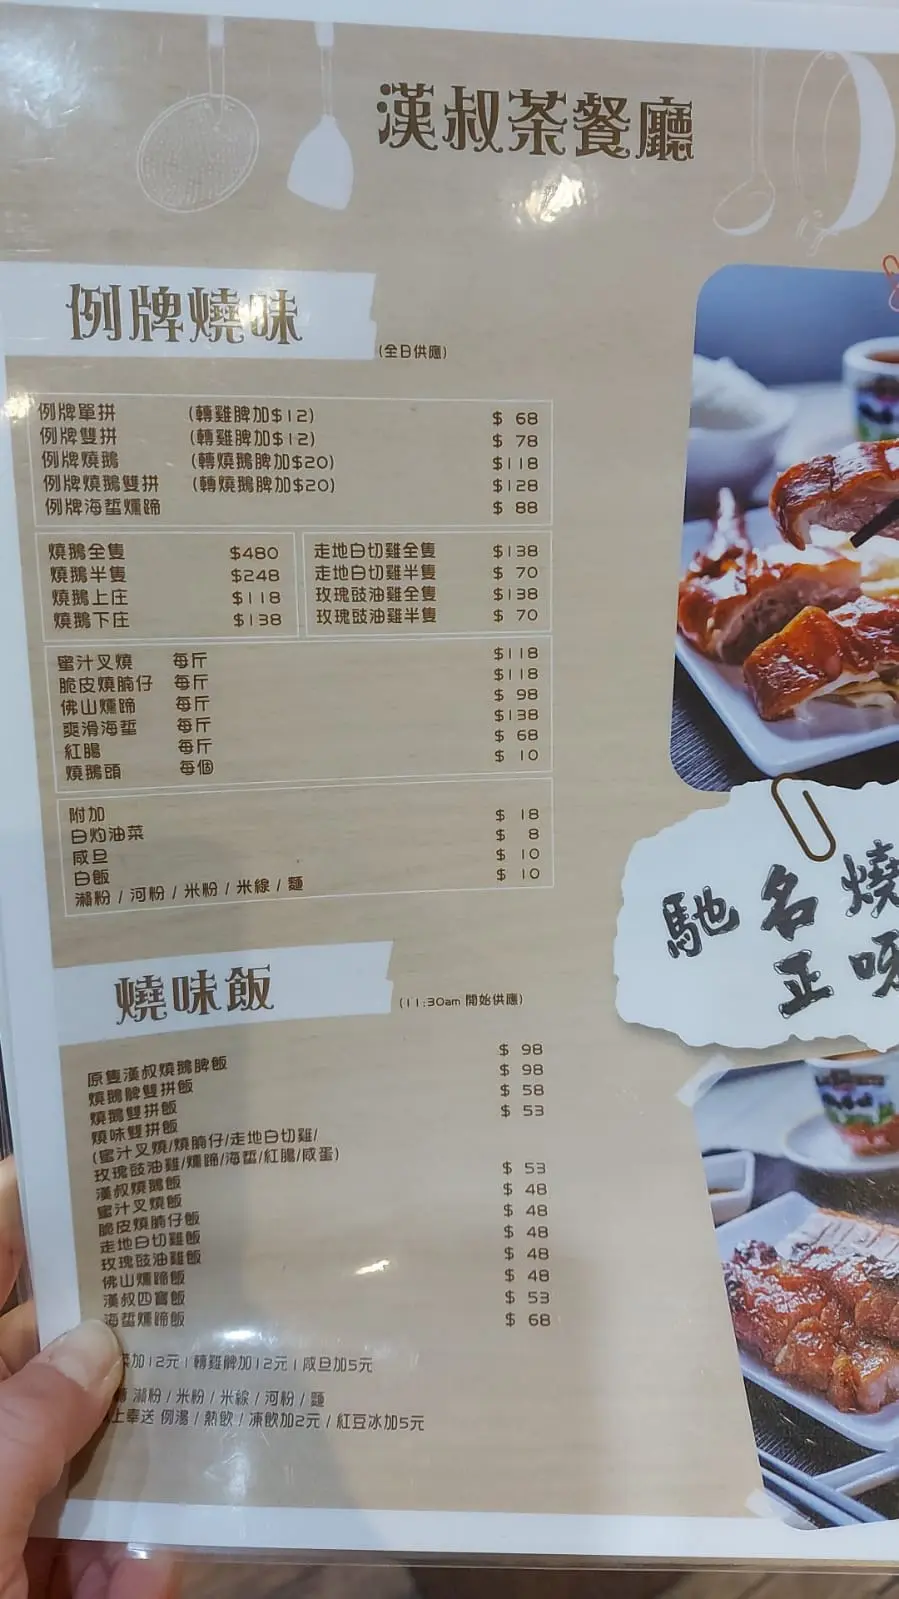 漢叔茶餐廳
例牌燒味
(全日供應)
例牌單拼 (轉雞脾加$12) $ 68
例牌雙拼 (轉雞脾加$12) $ 78
例牌燒鵝 (轉燒鵝脾加$20) $118
例牌燒鵝雙拼 (轉燒鵝脾加$20) $128
例牌海蜇燻蹄 $ 88
燒鵝全隻 $480
燒鵝半隻 $248
燒鵝上庄 $118
燒鵝下庄 $138
走地白切雞全隻 $138
走地白切雞半隻 $ 70
玫瑰豉油雞全隻 $138
玫瑰豉油雞半隻 $ 70
蜜汁叉燒 每斤 $118
脆皮燒腩仔 每斤 $118
佛山燻蹄 每斤 $ 98
爽滑海蜇 每斤 $138
紅腸 每斤 $ 68
燒鵝頭 每個 $ 10
附加
白灼油菜 $ 18
咸旦 $ 8
白飯 $ 10
瀨粉 / 河粉 / 米粉 / 米線 / 麵 $ 10
燒味飯
(11:30am 開始供應)
原隻漢叔燒鵝脾飯 $ 98
燒鵝髀雙拼飯 $ 98
燒鵝雙拼飯 $ 58
燒味雙拼飯 $ 53
(蜜汁叉燒/燒腩仔/走地白切雞/
玫瑰豉油雞/燻蹄/海蜇/紅腸/咸蛋)
漢叔燒鵝飯 $ 53
蜜汁叉燒飯 $ 48
脆皮燒腩仔飯 $ 48
走地白切雞飯 $ 48
玫瑰豉油雞飯 $ 48
佛山燻蹄飯 $ 48
漢叔四寶飯 $ 53
海蜇燻蹄飯 $ 68
加12元 / 轉雞髀加12元 / 咸旦加5元
瀨粉 / 米粉 / 米線 / 河粉 / 麵
上奉送 例湯 / 熱飲 / 凍飲加2元 / 紅豆冰加5元
馳名燒
正呀